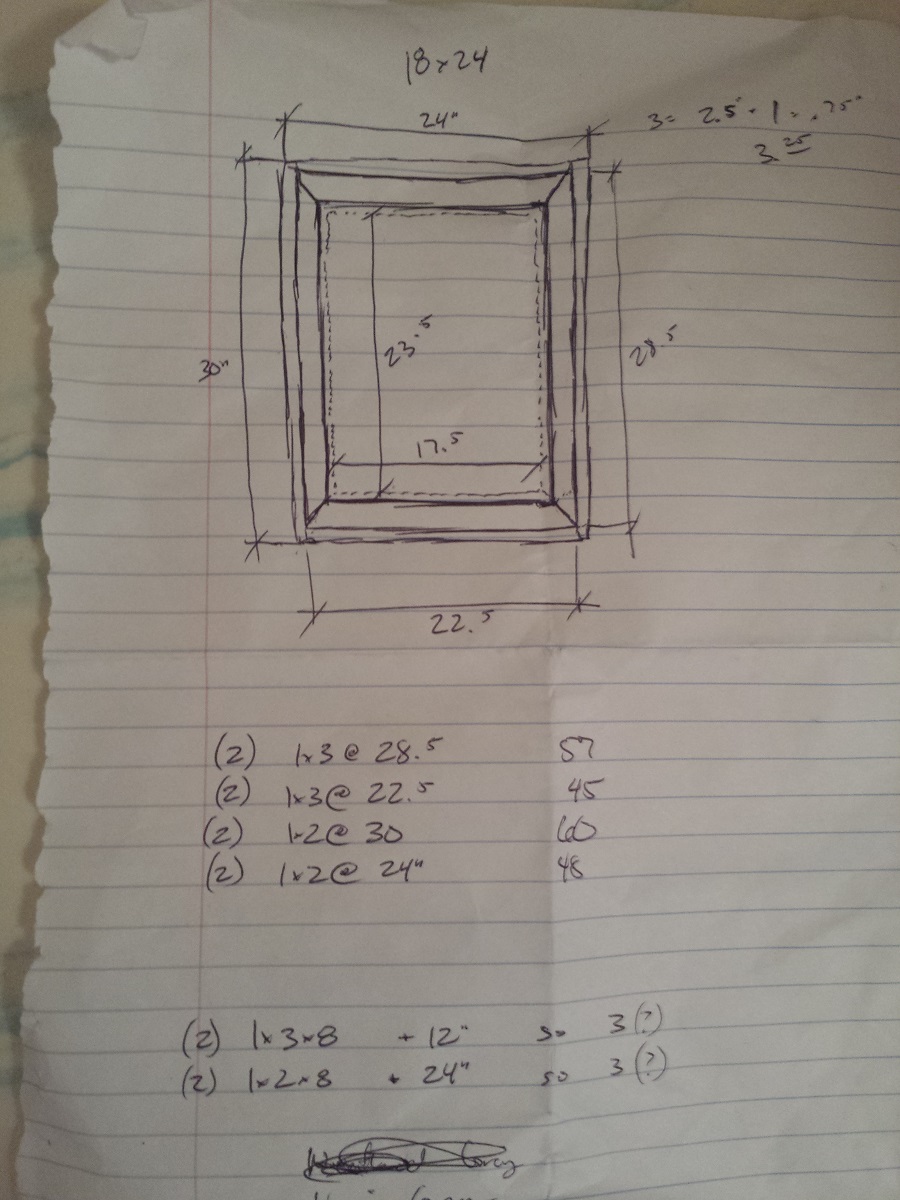 18x24
24"
3 = 2.5" + 1 = .75"
3.25
30"
23.5
28.5
17.5
22.5
(2) 1x3 @ 28.5 57
(2) 1x3 @ 22.5 45
(2) 1x2 @ 30 60
(2) 1x2 @ 24" 48
(2) 1x3x8 + 12" so 3(?)
(2) 1x2x8 + 24" so 3(?)